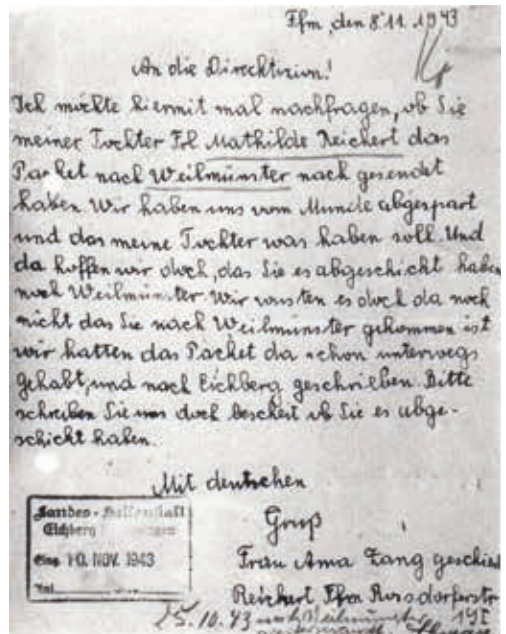 Ffm, den 8.11.1943
An die Direcktion!
Ich möchte hiermit mal nachfragen, ob Sie
meiner Tochter Frl Mathilde Reichert das
Packet nach Weilmünster nach gesendet
haben. Wir haben uns vom Munde abgespart
und das meine Tochter was haben soll. Und
da hoffen wir doch, das Sie es abgeschickt haben
nach Weilmünster. Wir wusten es doch da noch
nicht das Sie nach Weilmünster gekommen ist
wir hatten das Packet da schon unterwegs
gehabt, und nach Eichberg geschrieben. Bitte
schreiben Sie uns doch bescheit ob Sie es abge-
schickt haben.
Mit deutschen
Gruß
Frau Anna Zang geschied
Reichert Ffm Rossdorferstr
19 I
Landes-Heilanstalt
Eichberg
Eing. 10. NOV. 1943
25.10.43 nach Weilmünster